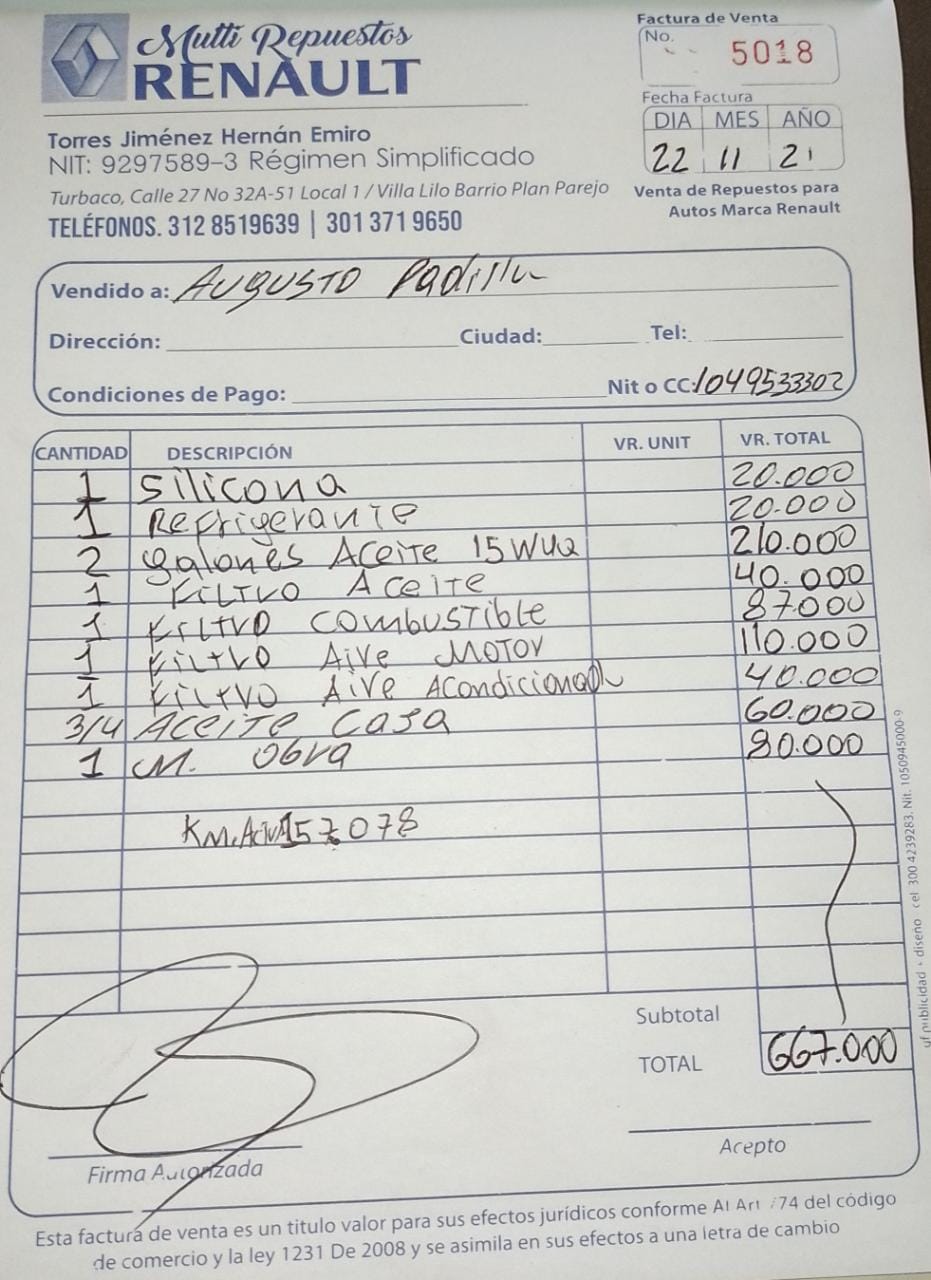 Multi Repuestos
RENAULT
Factura de Venta
No. 5018
Fecha Factura
DIA MES AÑO
22 11 21
Torres Jiménez Hernán Emiro
NIT: 9297589-3 Régimen Simplificado
Turbaco, Calle 27 No 32A-51 Local 1 / Villa Lilo Barrio Plan Parejo
TELÉFONOS. 312 8519639 | 301 371 9650
Venta de Repuestos para
Autos Marca Renault
Vendido a: Augusto Padilla
Dirección: Ciudad: Tel:
Condiciones de Pago: Nit o CC: 1049533302
CANTIDAD DESCRIPCIÓN VR. UNIT VR. TOTAL
1 Silicona 20.000
1 Refrigerante 20.000
2 galones Aceite 15W40 210.000
1 Filtro Aceite 40.000
1 Filtro Combustible 87.000
1 Filtro Aire Motor 110.000
1 Filtro Aire Acondicionado 40.000
3/4 Aceite Caja 60.000
1 M. Obra 80.000
Km. Actual 157.078
Subtotal
TOTAL 667.000
Firma Autorizada
Acepto
Esta factura de venta es un titulo valor para sus efectos jurídicos conforme Al Art 774 del código
de comercio y la ley 1231 De 2008 y se asimila en sus efectos a una letra de cambio
publicidad + diseño cel 300 4239283. Nit. 1050945000-9